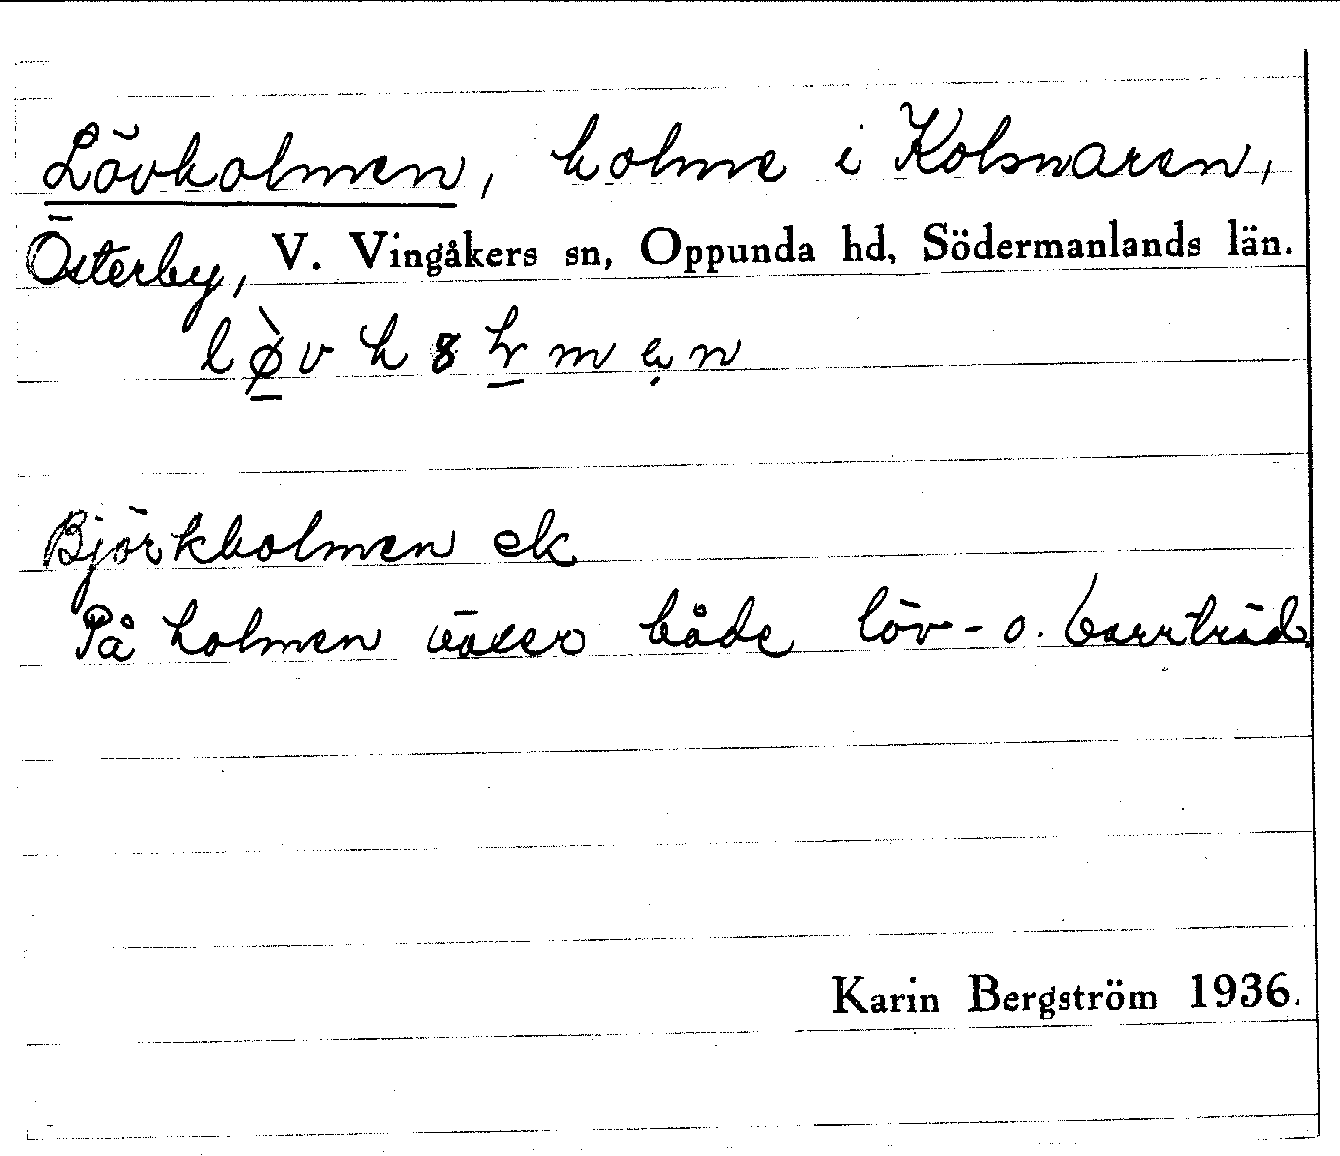 Lövholmen, holme i Kolsnaren,
Österby, V. Vingåkers sn, Oppunda hd, Södermanlands län.
Björkholmen ek
På holmen växer både löv- o. barrträd.
Karin Bergström 1936.